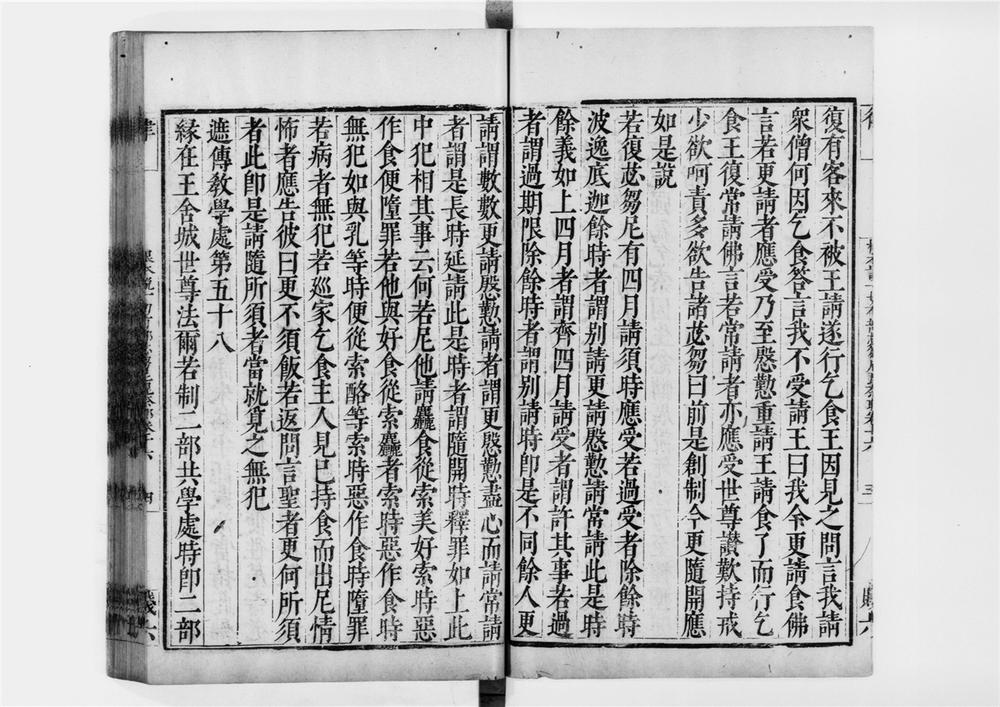 復有客來不被王請遂行乞食王因見之問言我請
衆僧何因乞食答言我不受請王曰我今更請食佛
言若更請者應受乃至慇懃重請王請食了而行乞
食王復常請佛言若常請者亦應受世尊讃歎持戒
少欲呵責多欲告諸苾芻曰前是創制今更隨開應
如是說
若復苾芻尼有四月請須時應受若過受者除餘時
波逸底迦餘時者謂別請更請慇懃請常請此是時
餘義如上四月者謂齊四月請受者謂許其事若過
者謂過期限除餘時者謂別請時卽是不同餘人更
請謂數數更請慇懃請者謂更慇懃盡心而請常請
者謂是長時延請此是時者謂隨開時釋罪如上此
中犯相其事云何若尼他請麤食從索美好索時惡
作食便墮罪若他與好食從索麤者索時惡作食時
無犯如與乳等時便從索酪等索時惡作食時墮罪
若病者無犯若廵家乞食主人見已持食而出尼情
怖者應告彼曰更不須飯若返問言聖者更何所須
者此卽是請隨所須者當就覓之無犯
遮傳教學處第五十八
緣在王舍城世尊法爾若制二部共學處時卽二部
律
四
義六